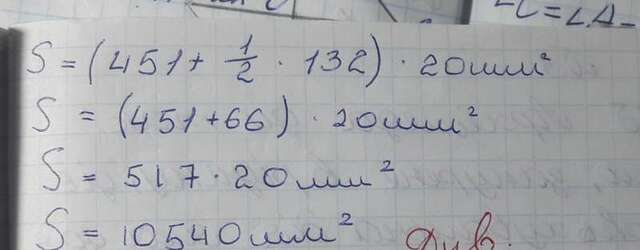 -C = ∠A-
S = (451 + 1/2 · 132) · 20мм²
S = (451+66) · 20мм²
S = 517 · 20мм²
S = 10540мм²